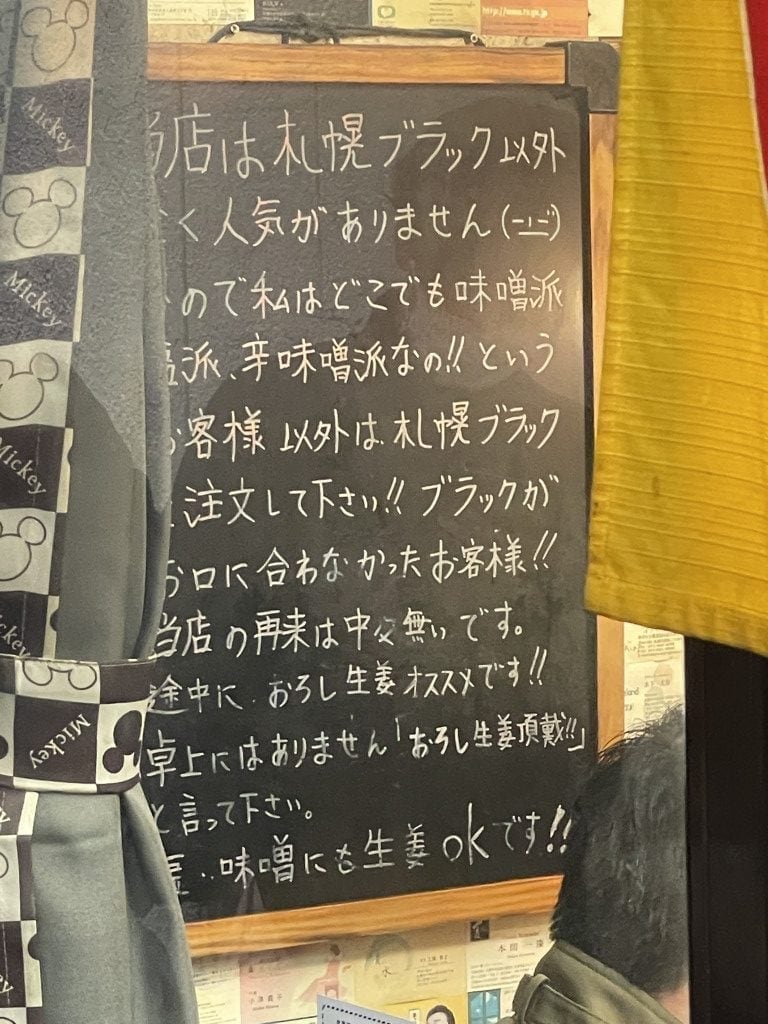 http://www.
Mickey
Mickey
Mickey
Mickey
Mickey
店は札幌ブラック以外
く人気がありません(ーー;)
ので私はどこでも味噌派
派、辛味噌派なの!!という
お客様以外は札幌ブラック
注文して下さい!!ブラックが
お口に合わなかったお客様!!
当店の再来は中々無いです。
途中に、おろし生姜オススメです!!
卓上にはありません「おろし生姜頂戴!!」
と言って下さい。
味噌にも生姜okです!!
本間一
小澤貴子